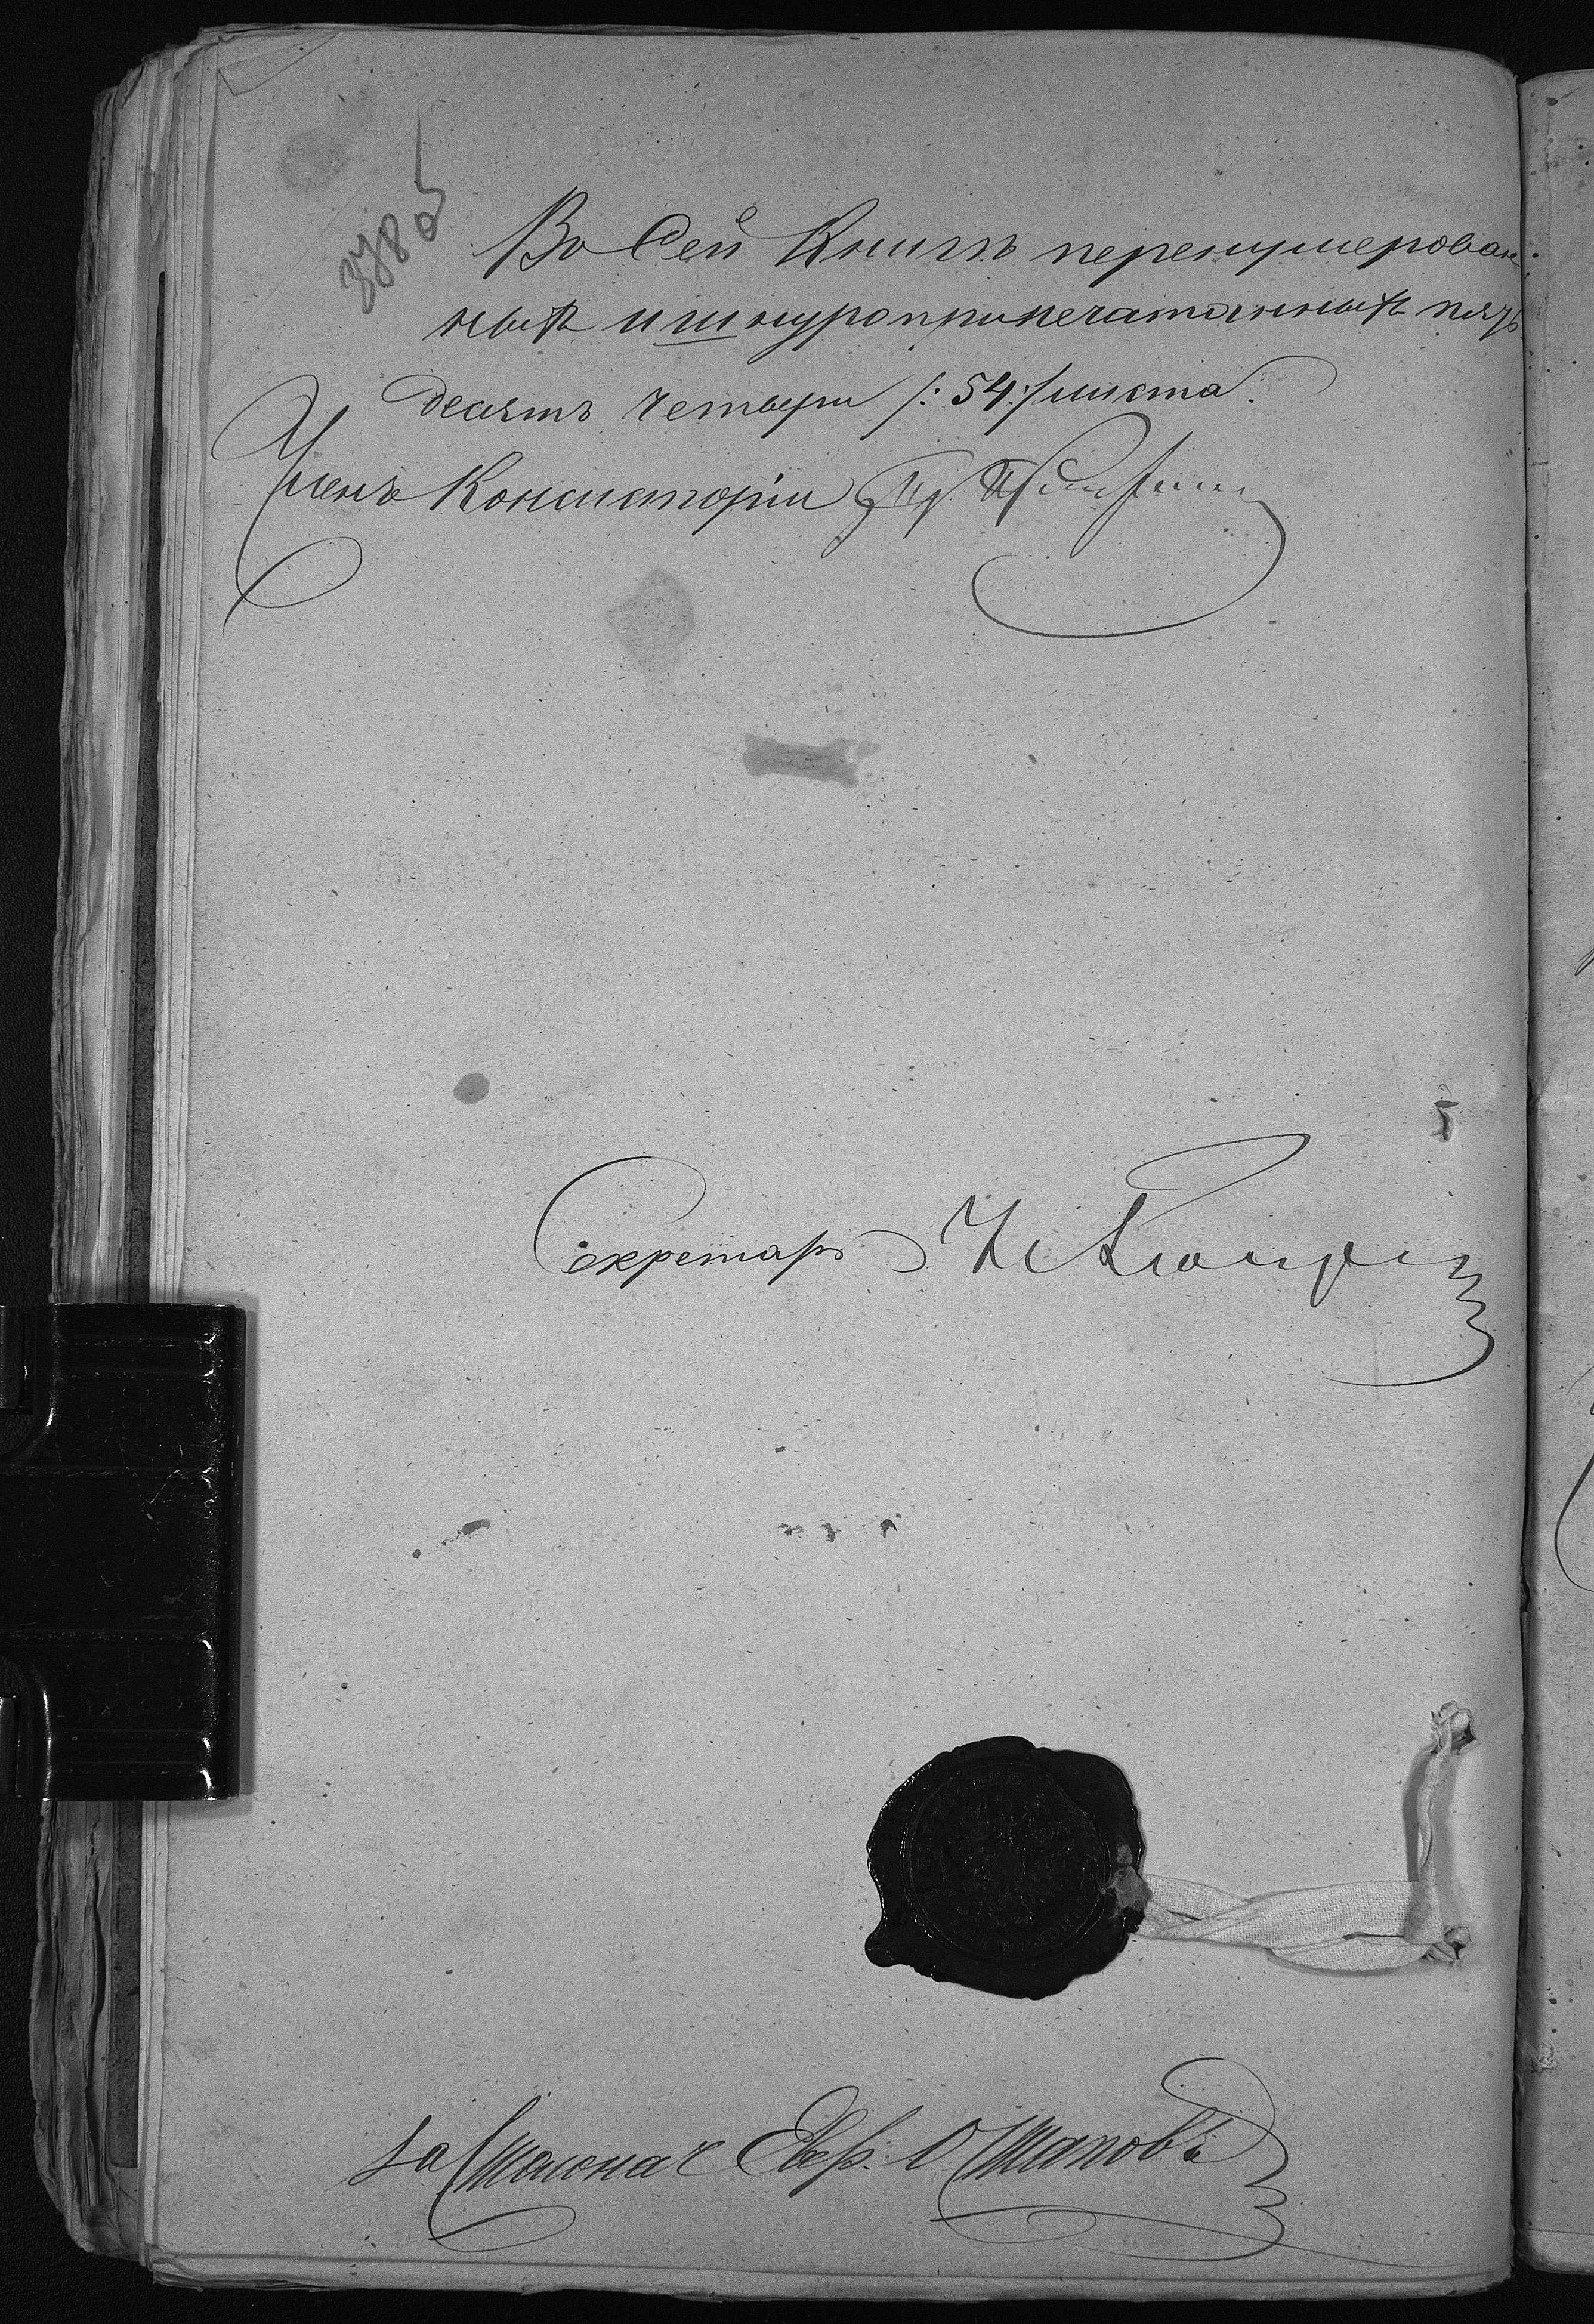 378 об
Во Сей Книгѣ перенумерован-
ныхъ и шнуроприпечатанныхъ пять
десятъ четыри /: 54 :/ листа.
Членъ Консисторіи Пр.
Секретарь
За Столонач Евф. Ошаповъ